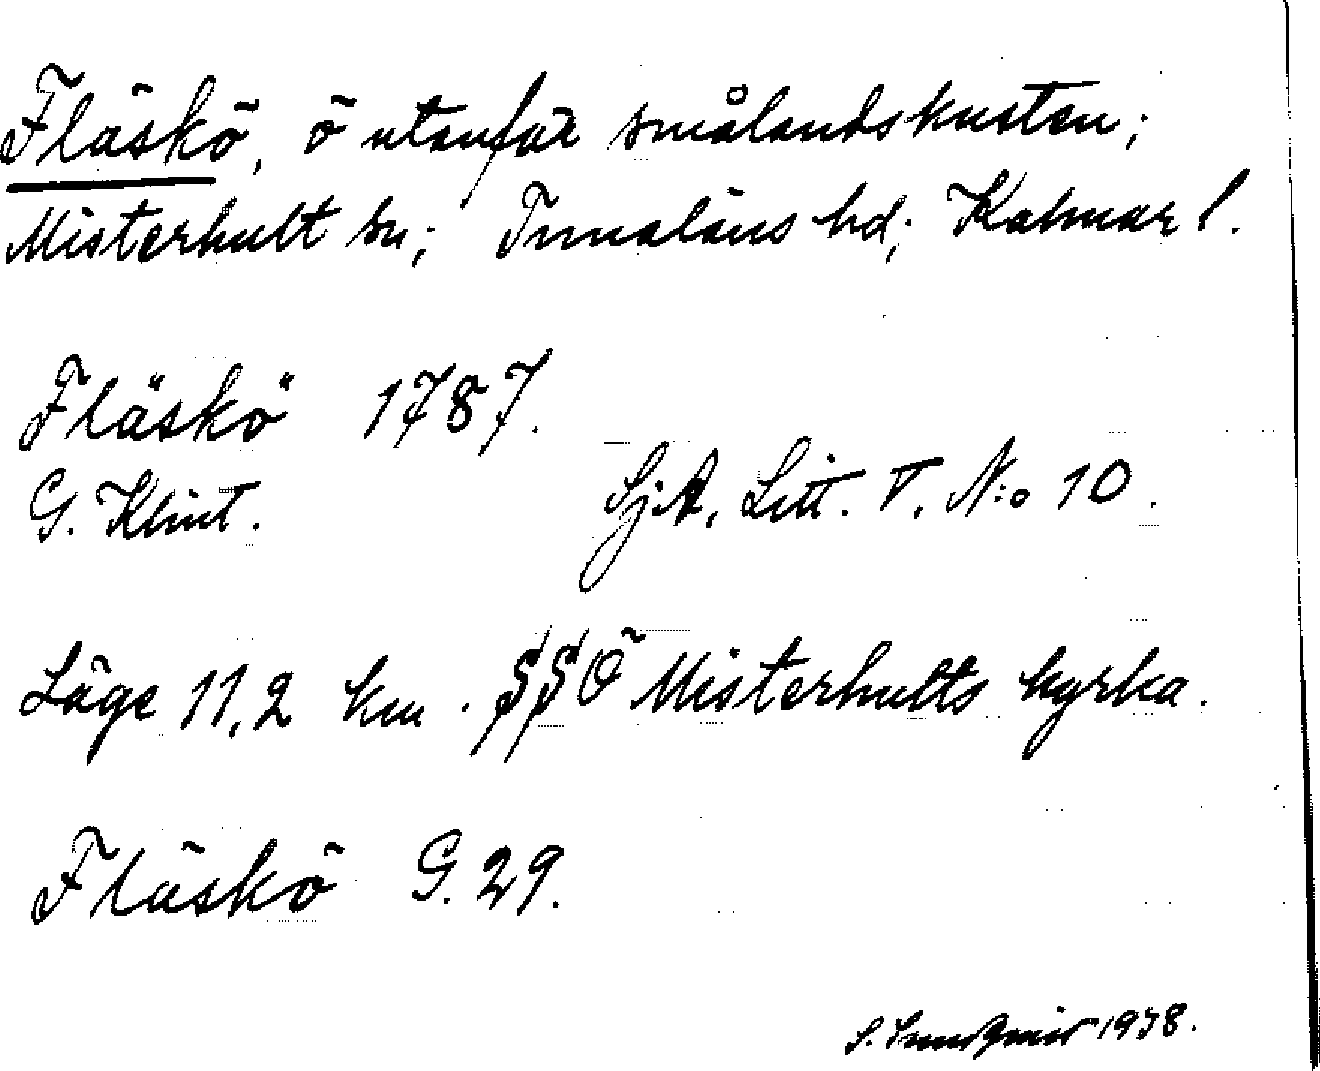 Fläskö, ö utanför smålandskusten;
Misterhult sn; Tunaläns hd; Kalmar l.
Fläskö 1787.
G. Klint. SjA, Litt. V, N:o 10.
Läge 11,2 km. SSÖ Misterhults kyrka.
Fläskö G. 29.
S. 1938.